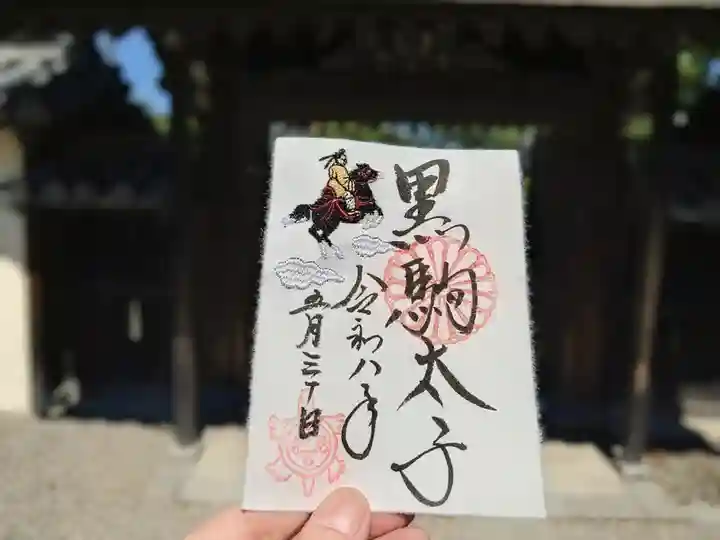 黒駒太子
令和八年
五月三十日